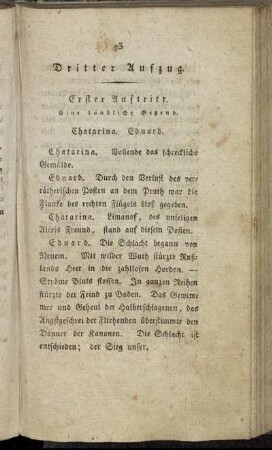 93
Dritter Aufzug.
Erster Auftritt.
Eine ländliche Gegend.
Chatarina. Eduard.
Chatarina. Vollende das schreckliche
Gemälde.
Eduard. Durch den Verlust des ver-
rätherischen Posten an dem Pruth war die
Flanke des rechten Flügels blos gegeben.
Chatarina. Limanof, des unseligen
Alexis Freund, stand auf diesem Posten.
Eduard. Die Schlacht begann von
Neuem. Mit wilder Wuth stürzte Ruß-
lands Heer in die zahllosen Horden. —
Ströme Bluts flossen. In ganzen Reihen
stürzte der Feind zu Boden. Das Gewim-
mer und Geheul der Halberschlagenen, das
Angstgeschrei der Fliehenden überstimmte den
Donner der Kanonen. Die Schlacht ist
entschieden; der Sieg unser.